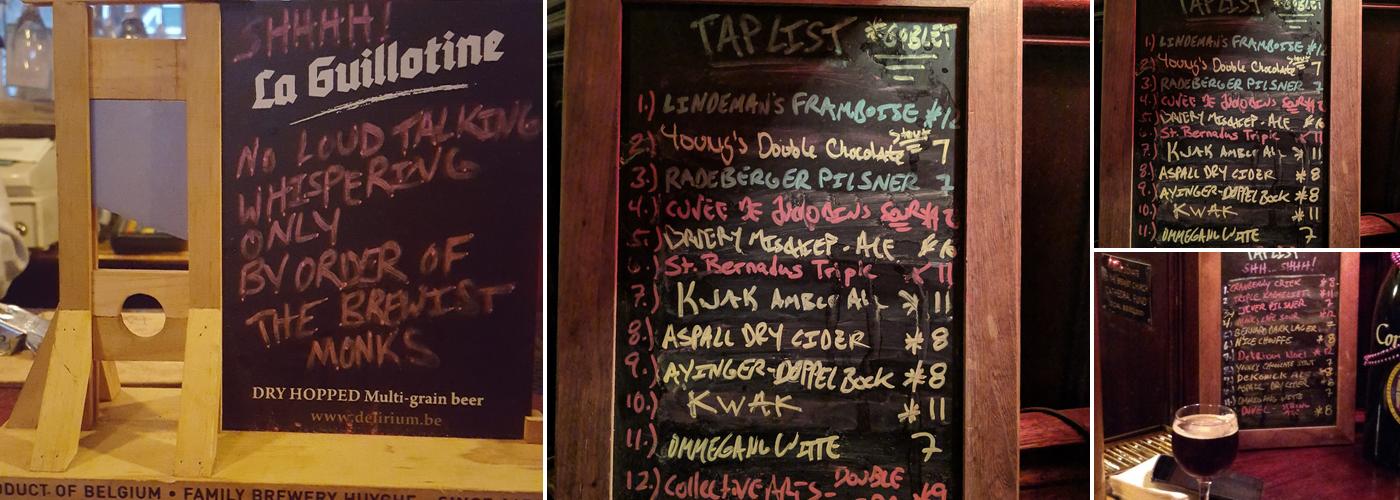 SHHHH!
La Guillotine
NO LOUD TALKING
WHISPERING
ONLY
BY ORDER OF
THE BREWIST
MONKS
DRY HOPPED Multi-grain beer
www.delirium.be
PRODUCT OF BELGIUM • FAMILY BREWERY HUYGHE
TAP LIST *GOBLET
1.) LINDEMAN'S FRAMBOISE
2.) Young's Double Chocolate Stout 7
3.) RADEBERGER PILSNER 7
4.) CUVÉE DE
5.) ALE
6.) St. Bernadus Triple 11
7.) KJAK AMBER ALE * 11
8.) ASPALL DRY CIDER * 8
9.) AYINGER-DOPPEL Bock * 8
10.) KWAK * 11
11.) OMMEGANG WITTE 7
12.) Collective Arts - DOUBLE
TAP LIST
1.) LINDEMAN'S FRAMBOISE
2.) Young's Double Chocolate 7
3.) RADEBERGER PILSNER 7
4.) CUVÉE DE
5.) ALE
6.) St. Bernadus Triple 11
7.) KJAK AMBER ALE * 11
8.) ASPALL DRY CIDER * 8
9.) AYINGER-DOPPEL Bock * 8
10.) KWAK * 11
11.) OMMEGANG WITTE 7
TAP LIST
SHH... SHHH!
CRANBERRY
TRIPLE KARMELIET
JEVER PILSNER
BERNARD DARK LAGER
N'ICE CHOUFFE
Delirium Noel
DEKONICK ALE
ASPALL DRY CIDER
DUVEL *8